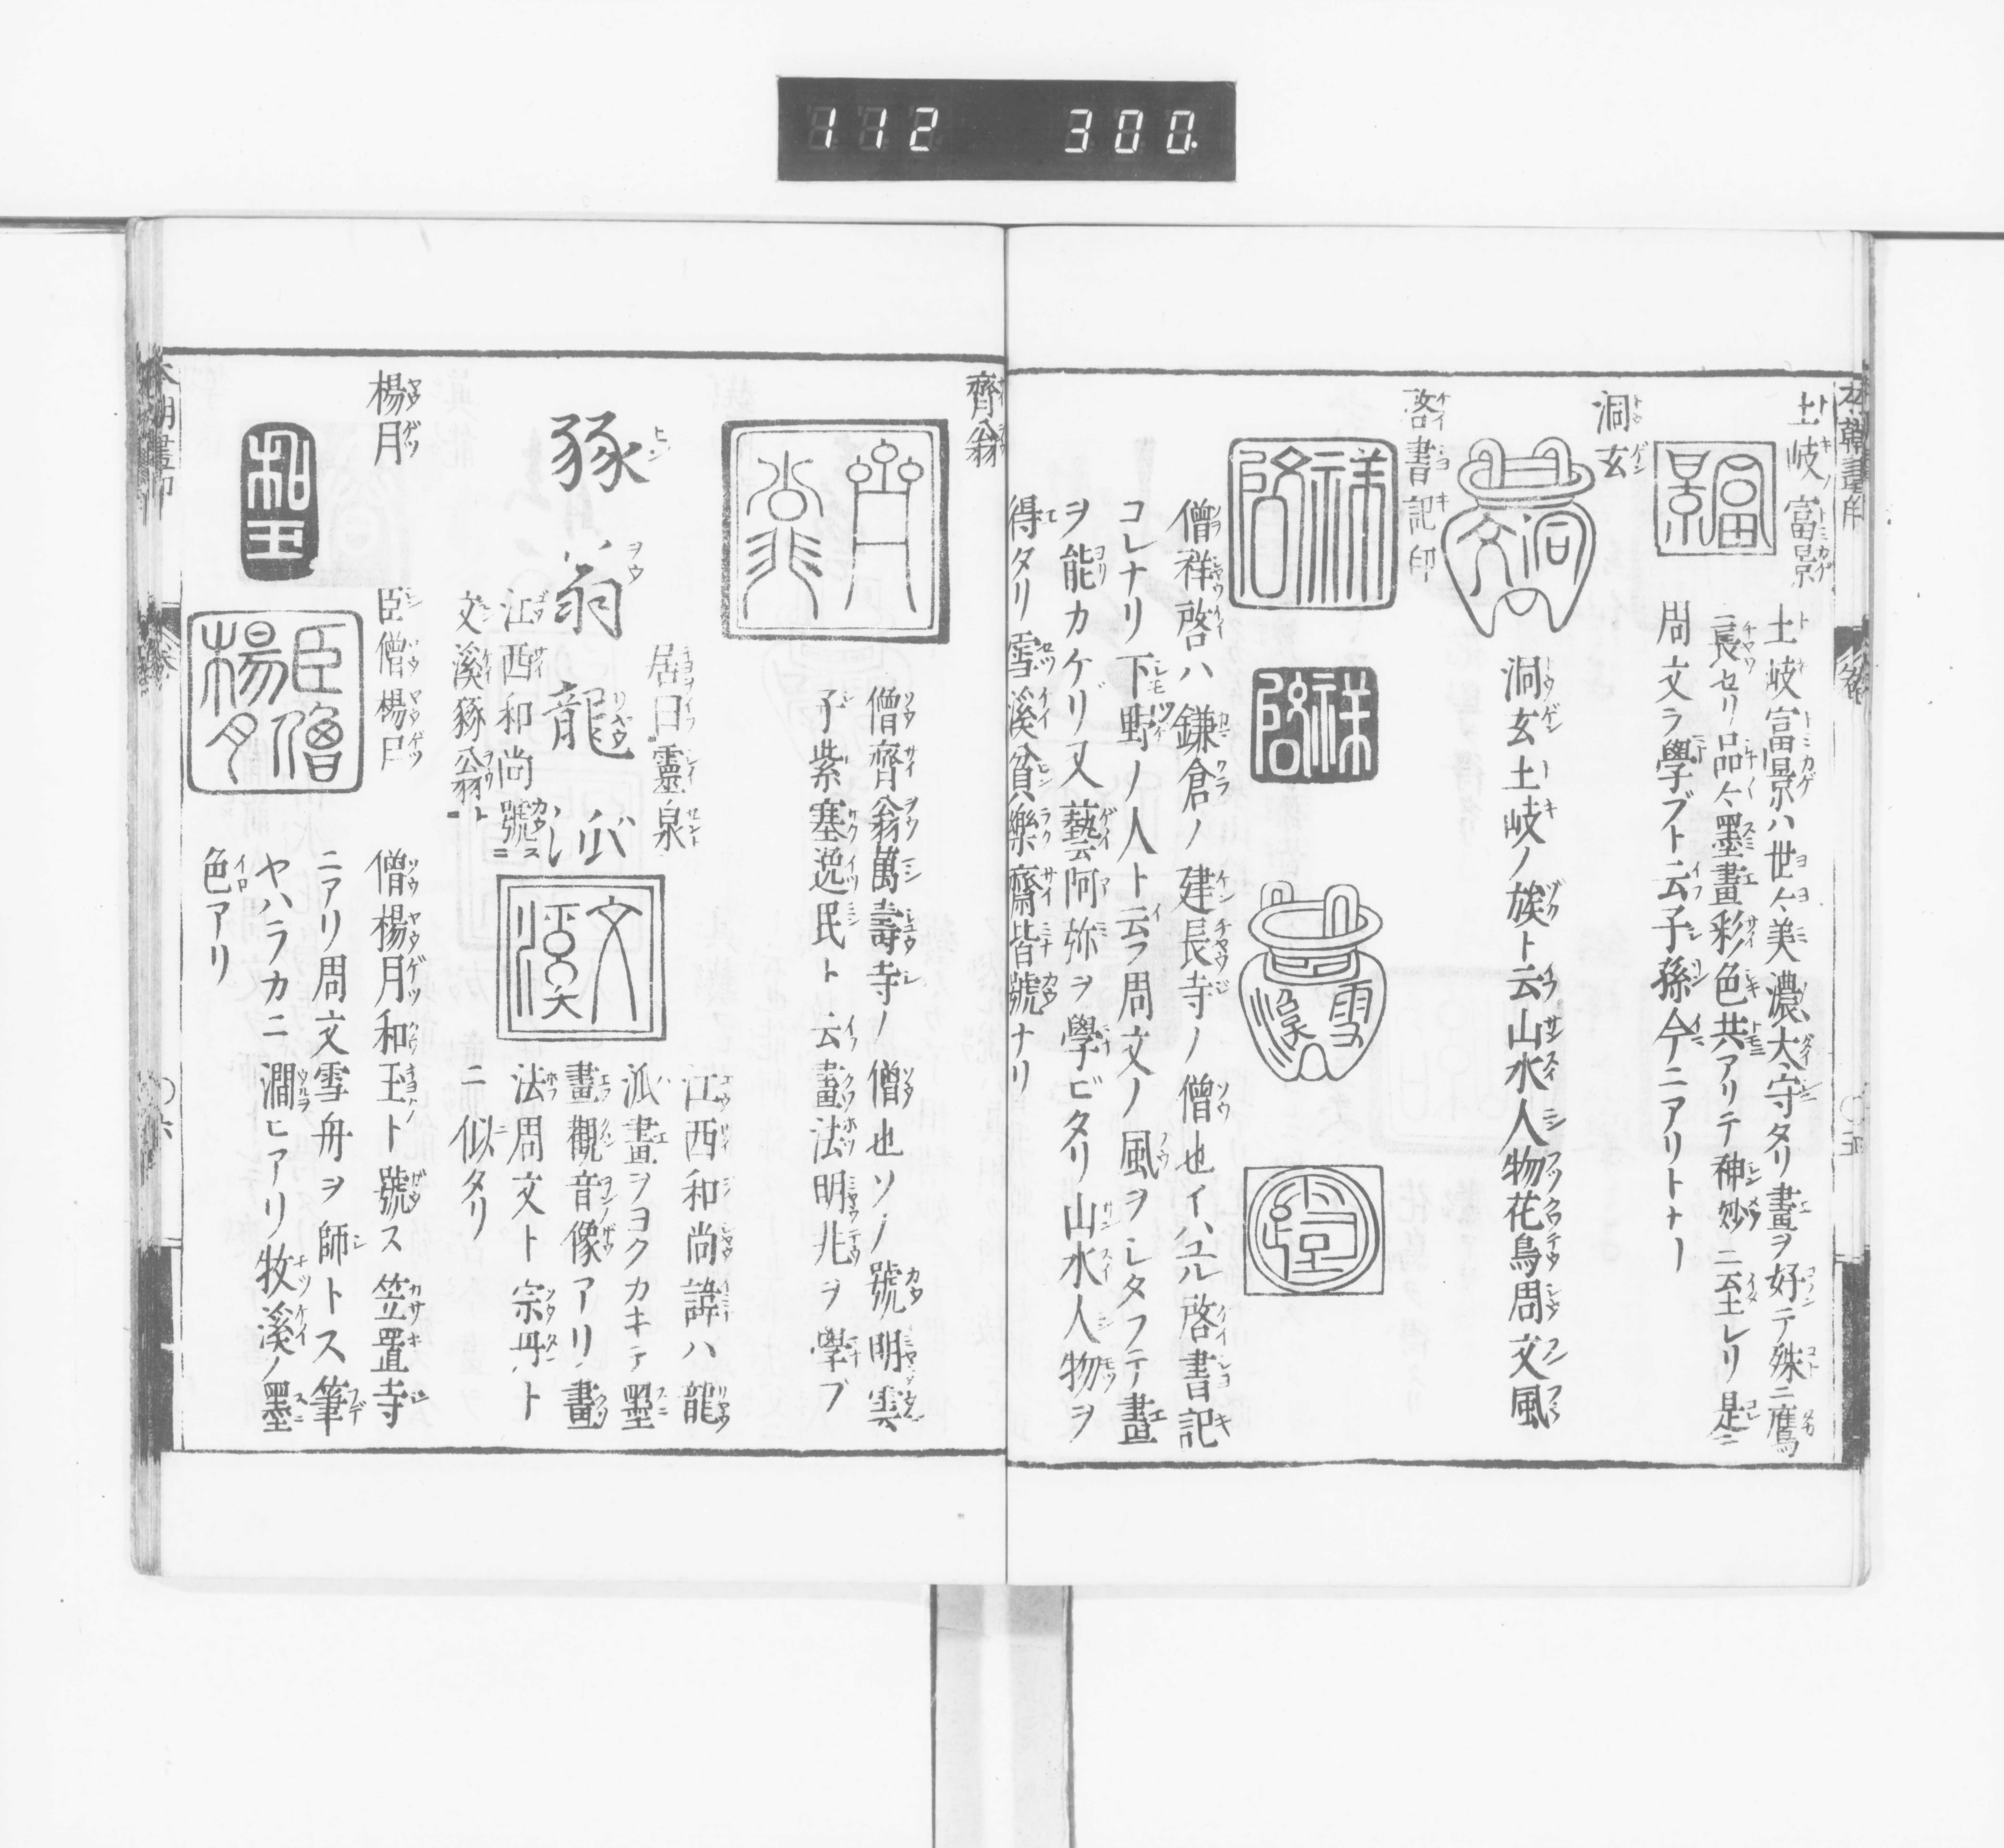 112 300.
土岐富景
富景
土岐富景ハ世々美濃大守タリ畫ヲ好テ殊ニ鷹
ニ長セリ品々墨畫彩色共アリテ神妙ニ至レリ是ニ
周文ヲ學ブト云子孫今ニアリトナー
洞玄
洞玄
洞玄土岐ノ族ト云山水人物花鳥周文風
啓書記印
祥啓
祥啓
雪溪
僧祥啓ハ鎌倉ノ建長寺ノ僧也イハユル啓書記
コレナリ下野ノ人ト云フ周文ノ風ヲシタフテ畫
ヲ能カケリ又藝阿弥ヲ學ビタリ山水人物ヲ
得タリ雪溪貧樂齋皆號ナリ
齊翁
齊翁
僧齊翁萬壽寺ノ僧也ソノ號明雲
子紫塞逸民ト云畫法明兆ヲ學ブ
豩翁龍派
文溪
居曰靈泉
江西和尚號ス
文溪豩翁ト
江西和尚諱ハ龍
派畫ヲヨクカキテ墨
畫觀音像アリ畫
法周文ト宗丹ト
ニ似タリ
楊月
和玉
臣僧楊月
臣僧楊月
僧楊月和玉ト號ス笠置寺
ニアリ周文雪舟ヲ師トス筆
ヤハラカニ澗ヒアリ牧溪ノ墨
色アリ
本朝畫印